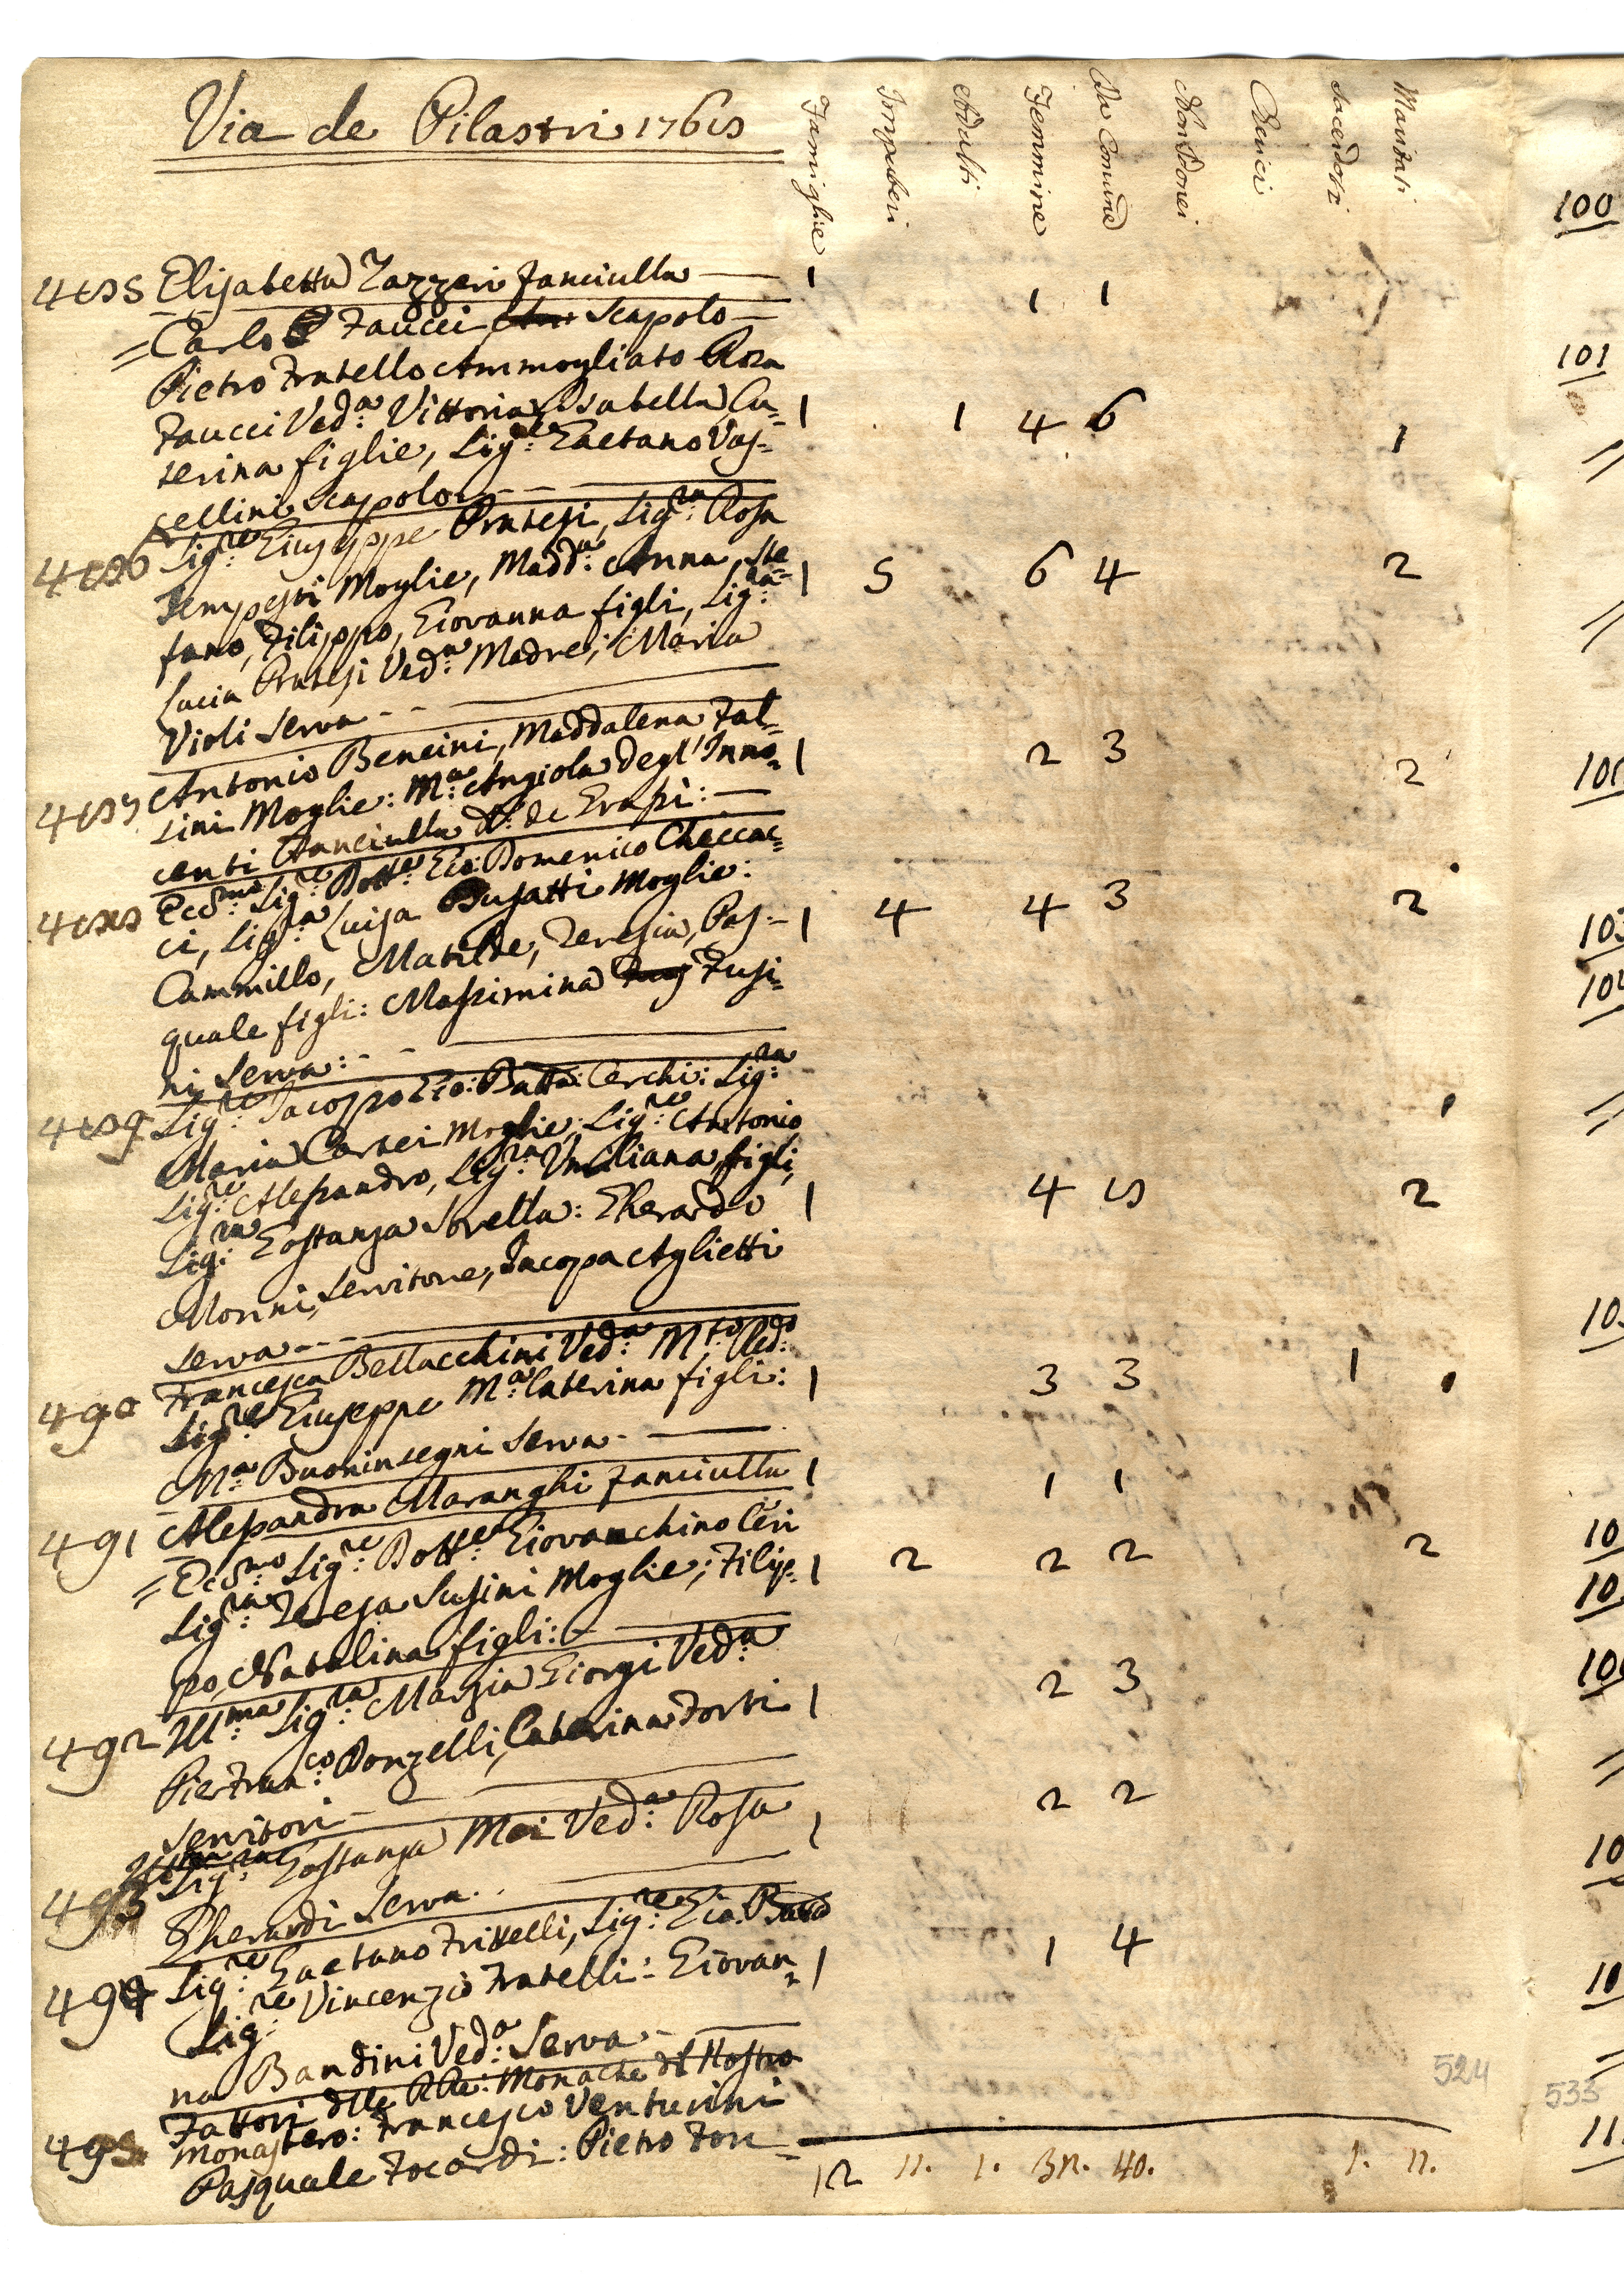 Via de Pilastri 1768
Famiglie Impuberi Adulti Femmine Da Comune Non Idonei Cherici Sacerdoti Maritati
485 Elisabetta Zazzeri fanciulla — 1 1 1
= Carlo Faucci Scapolo —
Pietro Fratello Ammogliato Rosa
Faucci Ved.a Vittoria, Isabella, Ca= 1 1 4 6 1
terina figlie, Sig.re Gaetano Vas=
sellini Scapolo - -
486 Sig.re Giuseppe Pratesi, Sig.ra Rosa
Tempesti Moglie, Madd.a Anna, Ste= 1 5 6 4 2
fano, Filippo, Giovanna figli, Sig.ra
Lucia Pratesi Ved.a Madre; Maria
Violi Serva - -
487 Antonio Bencini, Maddalena Fal=
sini Moglie: M.a Angiola degl'Inno= 1 2 3 2
centi fanciulla
488 Ecc.mo Sig.re Dott.e Gio: Domenico Checcac=
ci, Sig.ra Luisa Busatti Moglie:
Cammillo, Matilde, Teresia, Pas- 1 4 4 3 2
quale figli: Massimina Fusi=
ni Serva: - -
489 Sig.re Jacopo Gio: Batta: Cerchi: Sig.ra
Maria Corsei Moglie; Sig.re Antonio
Sig.re Alessandro, Sig.ra Umiliana figli,
Sig.ra Gostanza Sorella: Gherardo 1 4 8 2
Morini, Servitore, Jacopa Aglietti
serva - -
490 Francesca Bellacchini Ved.a M.to Red.do
Sig.re Giuseppe M.a Caterina figli: 1 3 3 1
M.a Buoninsegni Serva - —
491 Alessandra Maranghi fanciulla 1 1 1
= Ecc.mo Sig.re Dott.e Giovacchino Ceri
Sig.ra Teresa Susini Moglie; Filip= 1 2 2 2 2
po, Natalina figli: -
492 Ill.ma Sig.ra Marzia Giorgi Ved.a
Pierfran.co Donzelli, Caterina Forti 1 2 3
Servitori -
493 Sig.ra Gostanza Mei Ved.a Rosa 1 2 2
Gherardi Serva - -
494 Sig.re Gaetano Frittelli, Sig.re Gio: Batta
Sig.re Vincenzio Fratelli: Giovan= 1 1 4
na Bandini Ved.a Serva -
495 Fattori delle RRe: Monache del Nostro
Monastero: Francesco Venturini
Pasquale Focardi: Pietro Fon=
12 11. 1. 32. 40. 1. 11.
524
533
100
101